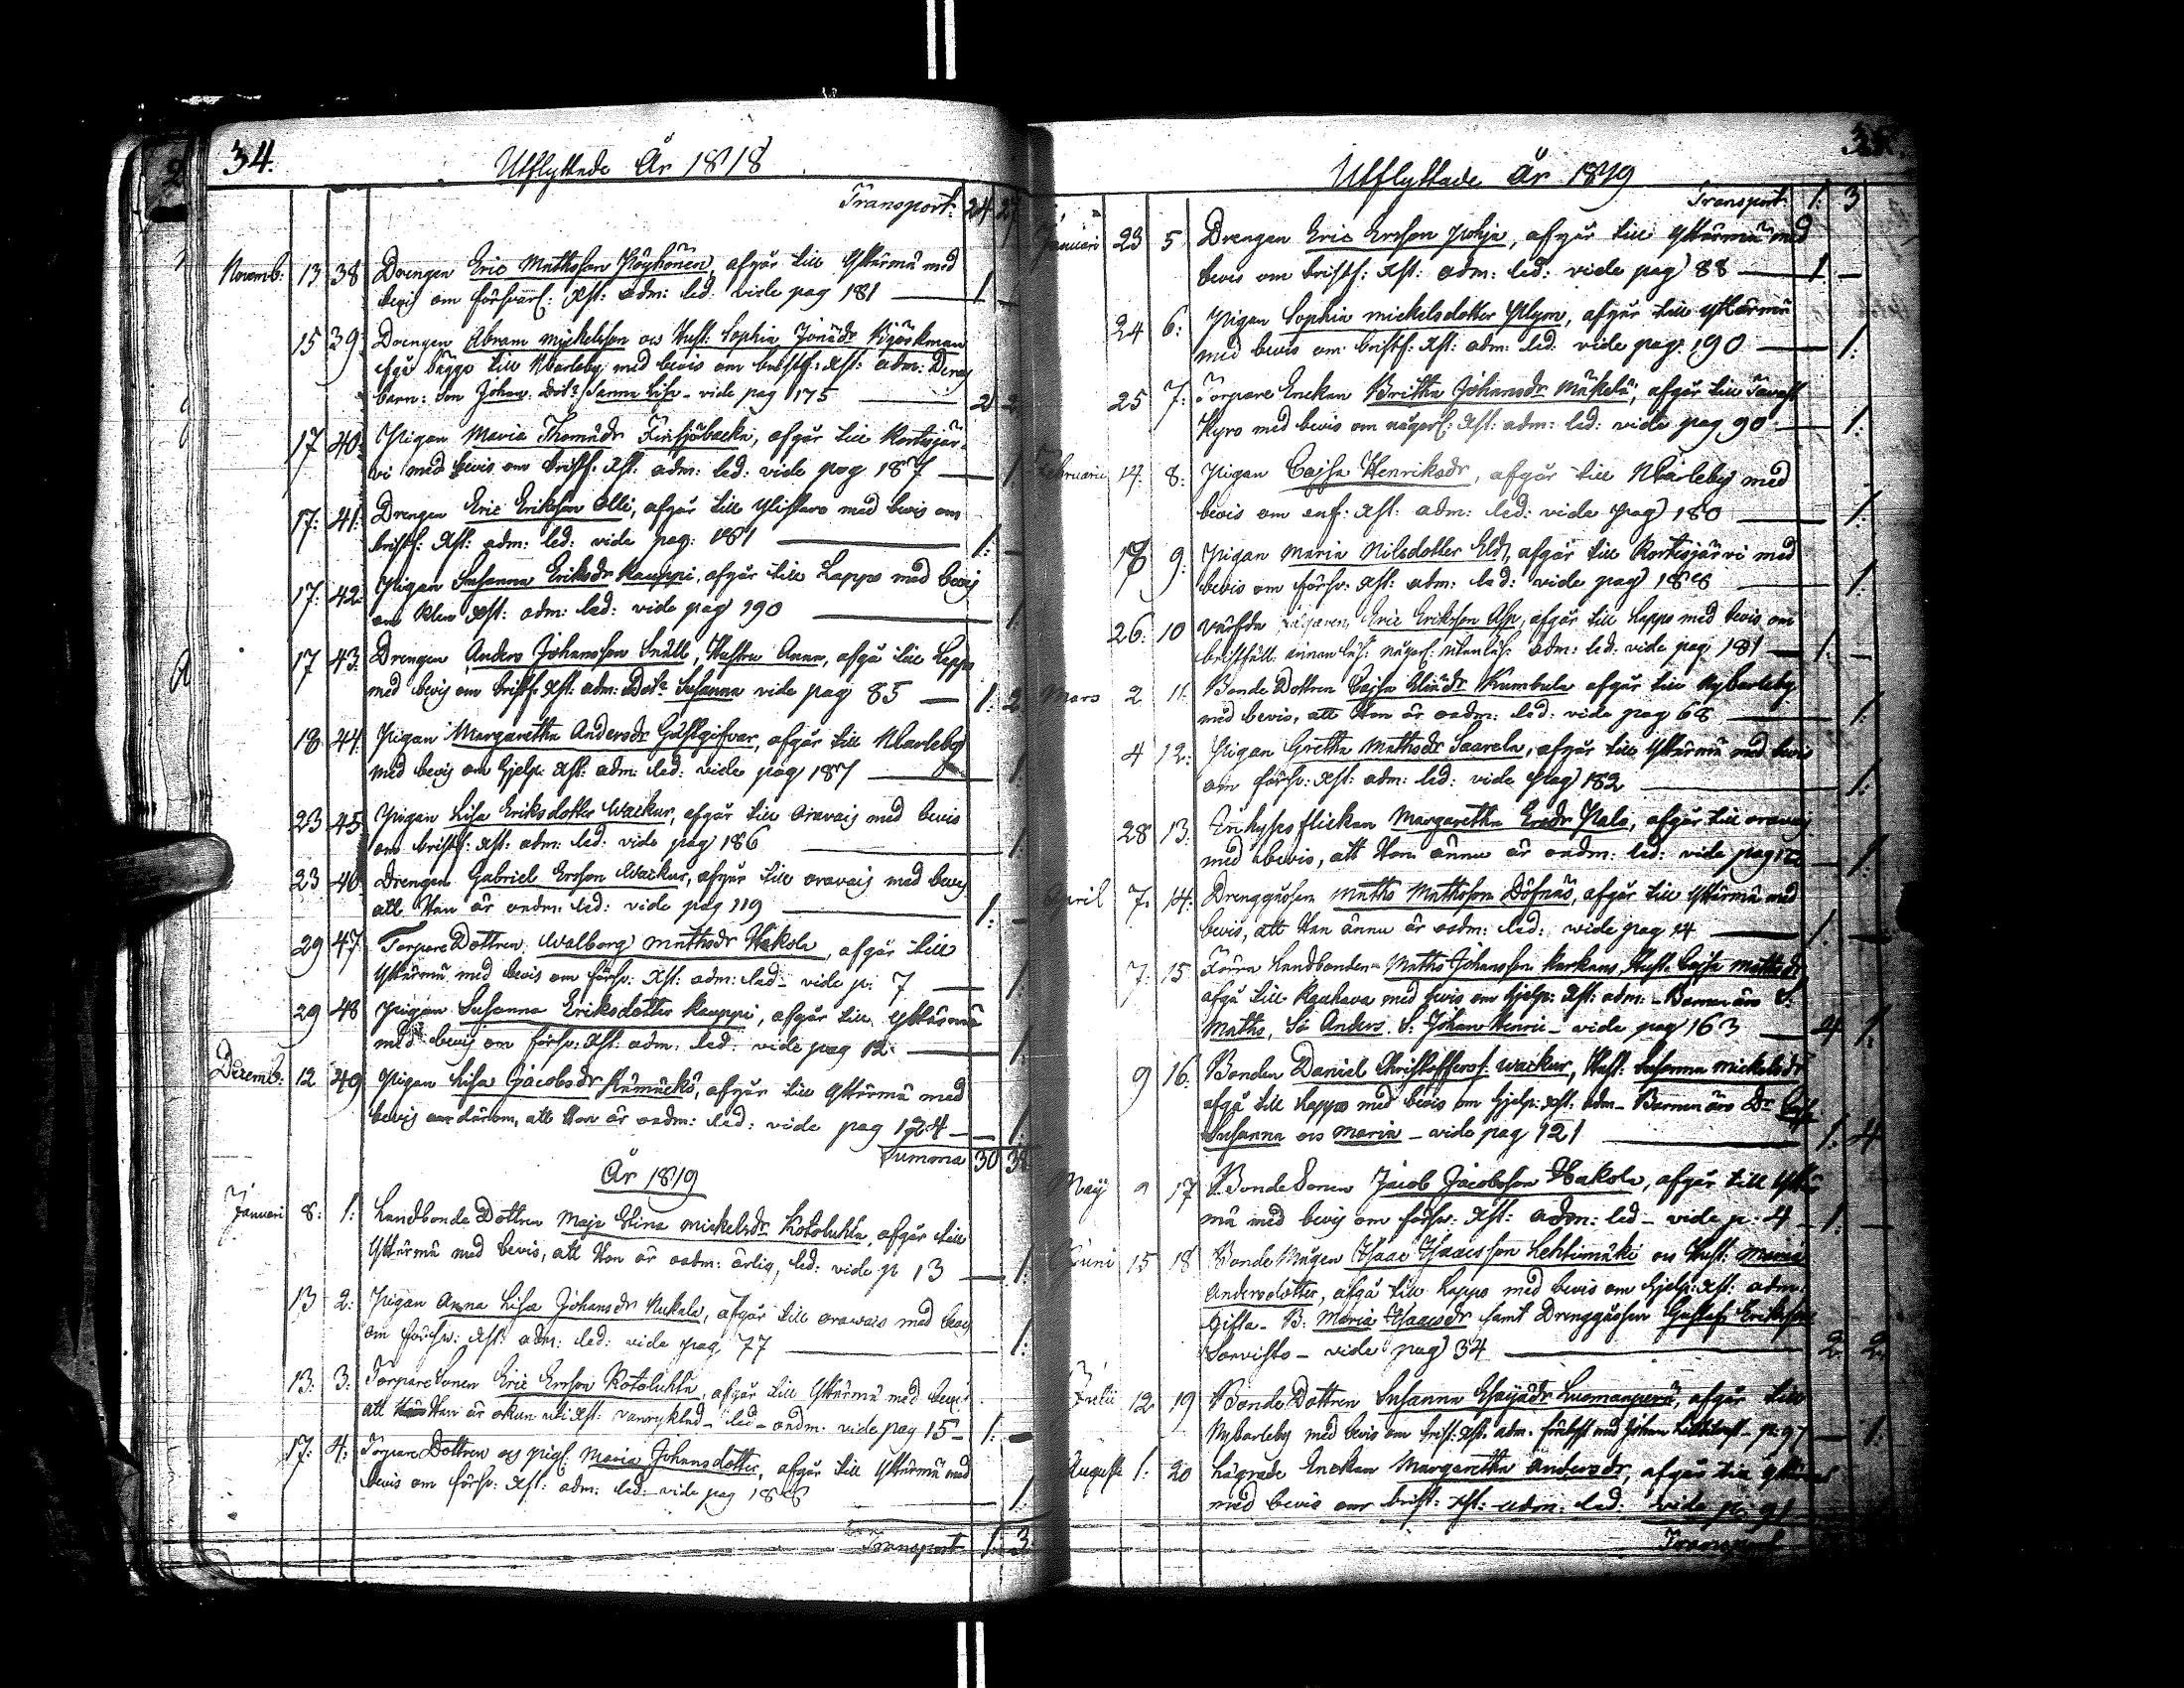 34.
Utflyttade År 1818
Transport: 24 27
Novemb: 13 38 Drengen Eric Mathsson Pöyhönen, afgår till Yttermä med
bevis om försvarl: Xst: adm: led: vide pag 181 — 1 —
15 39 Drengen Abram Mickelsson os Hust: Sophia Jonädr Björkman
afgå bägge till NCarleby med bevis om bristf: Xst: adm: Deras
barn: Son Johan. Dotr Sanna Lisa - vide pag 175 — 2 2
17 40. Pigan Maria Thomädr Finsjöbacka, afgår till Kortesjär-
vi med bevis om bristf: Xst: adm: led: vide pag 187 — 1.
17: 41: Drengen Eric Eriksson Olli, afgår till Ylistaro med bevis om
bristf: Xst: adm: led: vide pag: 181 — 1: —
17: 42: Pigan Susanna Eriksdr Kauppi, afgår till Lappo med bevis
om klen Xst: adm: led: vide pag 190 — 1.
17 43: Drengen Anders Johansson Snäll, Hustru Anna, afgå till Lappo
med bevis om bristf: Xst: adm: Dotr Susanna vide pag 85 — 1: 2
18 44. Pigan Margaretha Andersdr Gästgifvar, afgår till NCarleby
med bevis om hjelp: Xst: adm: led: vide pag 187 — 1.
23 45 Pigan Lisa Eriksdotter Wackur, afgår till Oravais med bevis
om bristf: Xst: adm: led: vide pag 186 — 1.
23 46 Drengen Gabriel Ersson Wackur, afgår till oravais med bevis
att Han är oadm: led: vide pag 119 — 1: —
29 47 Torpare Dottren Walborg Mathsdr Hakola, afgår till
Yttermä med bevis om försv: Xst: adm: led - vide p: 7 — 1
29 48 Pigan Susanna Eriksdotter Kauppi, afgår till Ytterma
med bevis om försv: Xst: adm. led: vide pag 12. — 1.
Decemb: 12 49 Pigan Lisa Jacobsdr Rämäckö, afgår till Ytterma med
bevis därom, att Hon är oadm: led: vide pag 124 — 1.
Summa 30 38.
År 1819
Januari 8: 1: Landbonde Dottren Maja Stina Mickelsdr Kotoluhta, afgår till
Ytterma med bevis, att Hon är oadm: ärlig, led: vide p 13 — 1:
13 2: Pigan Anna Lisa Johansdr Nukala, afgår till oravais med bevis
om försv: Xst: adm: led: vide pag 77 — 1:
13: 3: Torpare Sonen Eric Ersson Kotoluhta, afgår till Ytterma med bevis
att Han är okun. uti Xst: vanryktad - led - oadm. vide pag 15 — 1: —
17: 4: Torpare Dottren os pig: Maria Johansdotter, afgår till Ytterma med
bevis om försv: Xst: adm: led - vide pag 188 — 1.
Transport 1. 3.
35.
Utflyttade år 1819
Transport: 1: 3
Januari 23 5 Drengen Eric Ersson Pohja, afgår till Ytterma med
bevis om bristf: Xst: adm: led: vide pag 88 — 1. —
24 6: Pigan Sophia Mickelsdotter Plym, afgår till Ytterma
med bevis om bristf: Xst: adm: led: vide pag: 190 — 1:
25 7: Torpare Enckan Britha Johansdr Mäkelä, afgår till Tavast
Kyro med bevis om någorl: Xst: adm: led: vide pag 90 — 1.
Februarii 14. 8: Pigan Cajsa Henriksdr, afgår till NCarleby med
bevis om enf: Xst: adm: led: vide pag 180 — 1.
18 9: Pigan Maria Nilsdotter Eld, afgår till Kortesjärvi med
bevis om försv: Xst: adm: led: vide pag 188 — 1.
26: 10 Eric Eriksson Asp, afgår till Lappo med bevis om
bristfäll: innanläs: någorl: utanläs: adm: led: vide pag 181 — 1: —
Mars 2 11. Bonde Dottren Cajsa Eliädr Kumbula afgår till Nycarleby
med bevis, att Hon är oadm: led: vide pag 68 — 1.
4 12: Pigan Gretha Mathsdr Saarela, afgår till Ytterma med bevis
om försv: Xst: adm: led: vide pag 182 — 1:
28 13: Enhysesflickan Margaretha Ersdr Palo, afgår till oravais
med bevis, att Hon ännu är oadm: led: vide pag — 1:
April 7. 14: Drenggåsen Maths Mathsson Döfnäs, afgår till Ytterma med
bevis, att Han ännu är oadm: led: vide pag 14 — 1. —
7: 15 Förra Landbonden Maths Johansson Karkaus, Hust: Cajsa Mathsdr
afgå till Kauhava med bevis om hjelp: Xst: adm: - Barnen äro S:
Maths, So Anders. S: Johan Henric - vide pag 163 — 4 1.
9 16: Bonden Daniel Christoffersf: Wackur, Hust: Susanna Mickelsdr
afgå till Lappo med bevis om hjelp: Xst: adm - Barnen äro Dr
Susanna os Maria - vide pag 121 — 1: 4
Maij 9 17 BondeSonen Jacob Jacobsson Hakola, afgår till Ytter
mä med bevis om försv: Xst: adm: led - vide p: 4 — 1: —
Juni 15 18 BondeMågen Isaac Isaacsson Lehtimäki os Hust: Maria
Andersdotter, afgå till Lappo med bevis om hjelp: Xst: adm.
Gifta - B: Maria Isaacsdr samt Drenggåssen Gustaf Eriksson
Sorvisto - vide pag 34 — 2. 2.
Julii 12 19 Bonde Dottren Susanna Esaijädr Luomanperä, afgår till
Nycarleby med bevis om brist: Xst: adm. förlofvt med Johan - p: 97 — 1:
Augusti 1: 20 Enckan Margaretha Andersdr, afgår till Ytterma
med bevis om brist: Xst: adm: led: vide p: 91
Transport